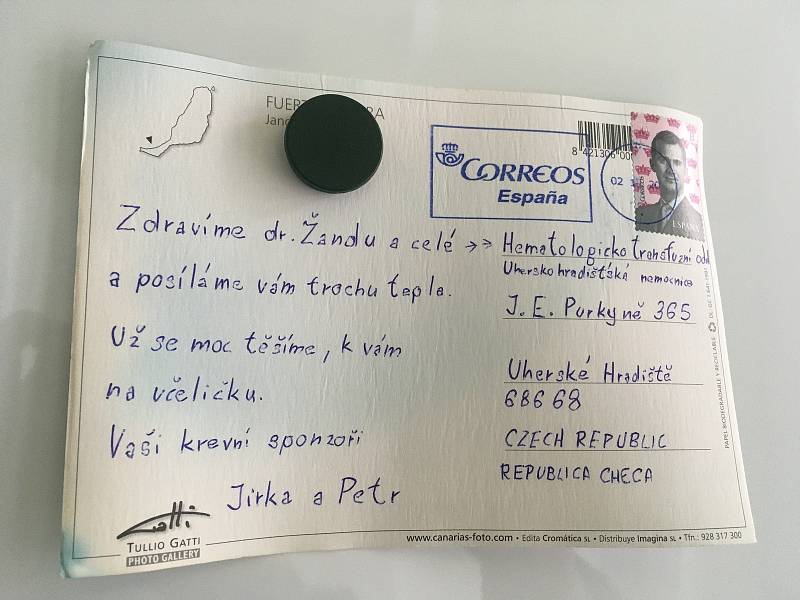 CORREOS
España
8 421306 00
02
ESPAÑA
Zdravíme dr. Žandu a celé →→
a posíláme vám trochu tepla.
Už se moc těšíme, k vám
na včeličku.
Vaši krevní sponzoři
Jirka a Petr
Hematologicko transfuzní odd
Uherskohradišťská nemocnice
J. E. Purkyně 365
Uherské Hradiště
686 68
CZECH REPUBLIC
REPUBLICA CHECA
Gatti
TULLIO GATTI
PHOTO GALLERY
www.canarias-foto.com • Edita Cromática SL • Distribuye Imagina SL • Tfn.: 928 317 300
PAPEL BIODEGRADABLE Y RECICLABLE